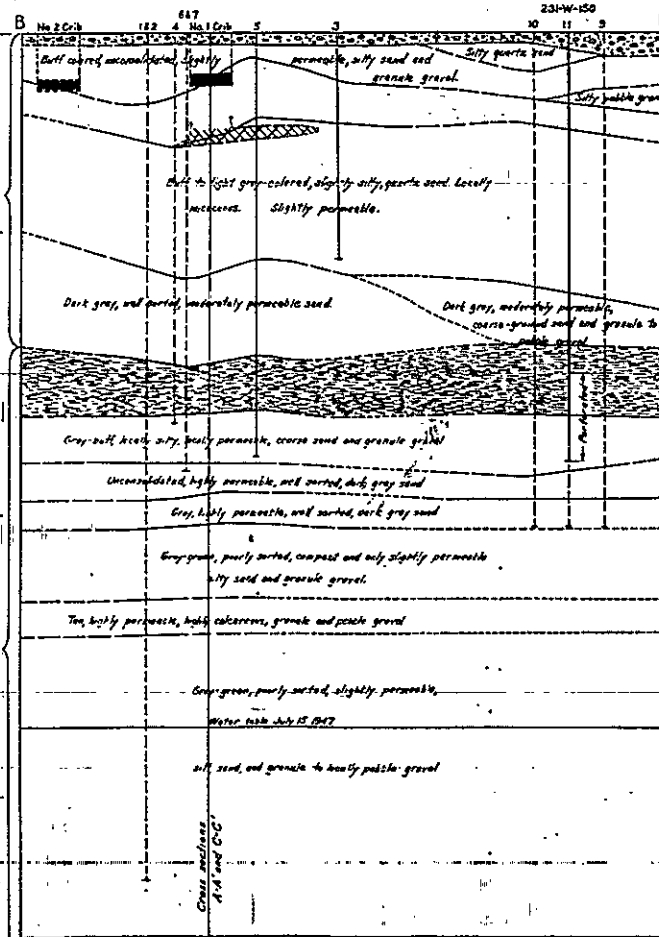 6&7
231-W-150
B
No 2 Crib
1&2
4
No. 1 Crib
5
3
10
11
9
Buff colored, unconsolidated, slightly
permeable, silty sand and
granule gravel.
Silty quartz sand
Silty pebble grav
Buff to light grey-colored, slightly silty, quartz sand. Locally
micaceous. Slightly permeable.
Dark gray, well sorted, moderately permeable sand.
Dark gray, moderately permeable,
coarse-grained sand and granule to
pebble gravel
Perforated
Gray-buff, locally silty, highly permeable, coarse sand and granule gravel
Unconsolidated, highly permeable, well sorted, dark gray sand
Gray, highly permeable, well sorted, dark gray sand
Gray-green, poorly sorted, compact and only slightly permeable
silty sand and granule gravel.
Tan, highly permeable, highly calcareous, granule and pebble gravel
Gray-green, poorly sorted, slightly permeable,
Water table July 15 1947
silt, sand, and granule to locally pebble gravel
Cross sections
A-A' and C-C'